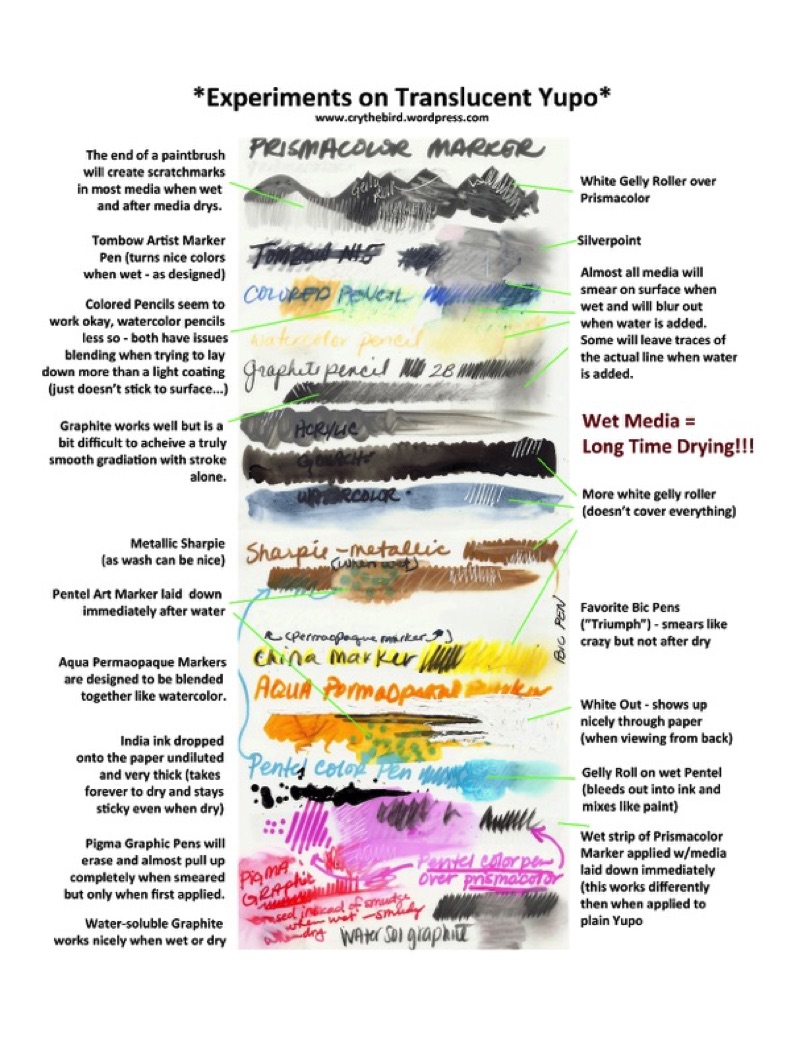 *Experiments on Translucent Yupo*
www.crythebird.wordpress.com
The end of a paintbrush
will create scratchmarks
in most media when wet
and after media drys.
Tombow Artist Marker
Pen (turns nice colors
when wet - as designed)
Colored Pencils seem to
work okay, watercolor pencils
less so - both have issues
blending when trying to lay
down more than a light coating
(just doesn't stick to surface...)
Graphite works well but is a
bit difficult to acheive a truly
smooth gradiation with stroke
alone.
Metallic Sharpie
(as wash can be nice)
Pentel Art Marker laid down
immediately after water
Aqua Permaopaque Markers
are designed to be blended
together like watercolor.
India ink dropped
onto the paper undiluted
and very thick (takes
forever to dry and stays
sticky even when dry)
Pigma Graphic Pens will
erase and almost pull up
completely when smeared
but only when first applied.
Water-soluble Graphite
works nicely when wet or dry
PRISMACOLOR MARKER
gelly
Roll
TOMBOW N15
COLORED PENCIL
watercolor pencil
graphite pencil 2B
ACRYLIC
GOUACHE
WATERCOLOR
Sharpie - metallic
(when wet)
BIC PEN
(permaopaque marker)
China marker
AQUA Permaopaque marker
Pentel color pen
Pentel color pen
over prismacolor
PIGMA
GRAPHIC
erased instead of smudge
when wet - smudgy
when dry
WATER Sol graphite
White Gelly Roller over
Prismacolor
Silverpoint
Almost all media will
smear on surface when
wet and will blur out
when water is added.
Some will leave traces of
the actual line when water
is added.
Wet Media =
Long Time Drying!!!
More white gelly roller
(doesn't cover everything)
Favorite Bic Pens
("Triumph") - smears like
crazy but not after dry
White Out - shows up
nicely through paper
(when viewing from back)
Gelly Roll on wet Pentel
(bleeds out into ink and
mixes like paint)
Wet strip of Prismacolor
Marker applied w/media
laid down immediately
(this works differently
then when applied to
plain Yupo